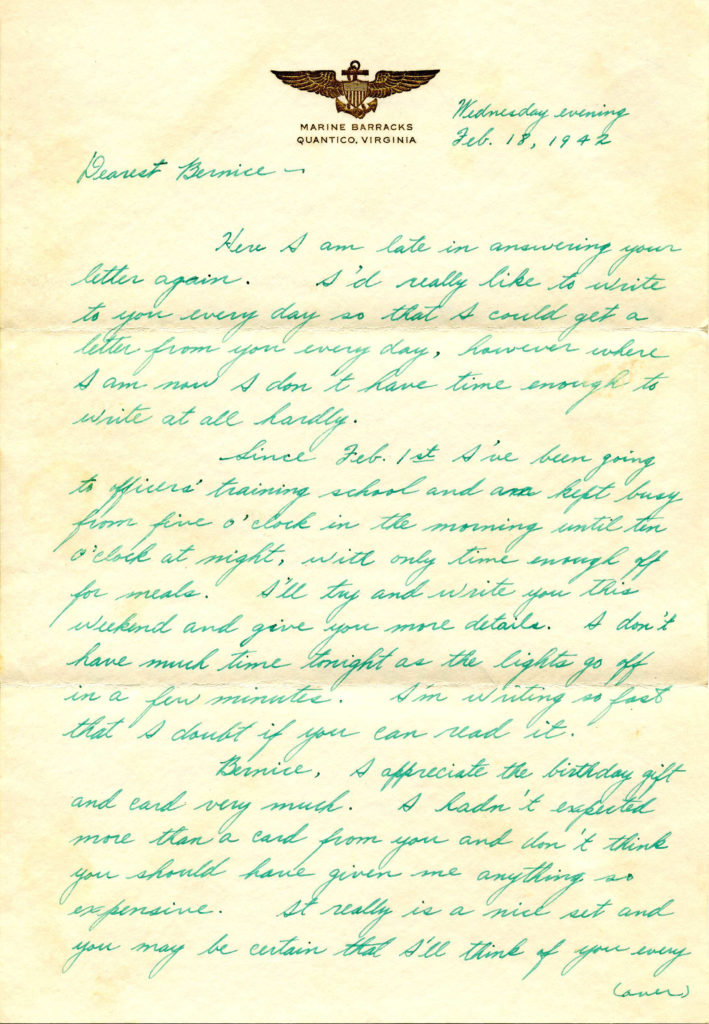 MARINE BARRACKS
QUANTICO, VIRGINIA
Wednesday evening
Feb. 18, 1942
Dearest Bernice ~
Here I am late in answering your
letter again. I'd really like to write
to you every day so that I could get a
letter from you every day, however where
I am now I don't have time enough to
write at all hardly.
Since Feb. 1st I've been going
to officers' training school and am kept busy
from five o'clock in the morning until ten
o'clock at night, with only time enough off
for meals. I'll try and write you this
weekend and give you more details. I don't
have much time tonight as the lights go off
in a few minutes. I'm writing so fast
that I doubt if you can read it.
Bernice, I appreciate the birthday gift
and card very much. I hadn't expected
more than a card from you and don't think
you should have given me anything so
expensive. It really is a nice set and
you may be certain that I'll think of you every
(over)